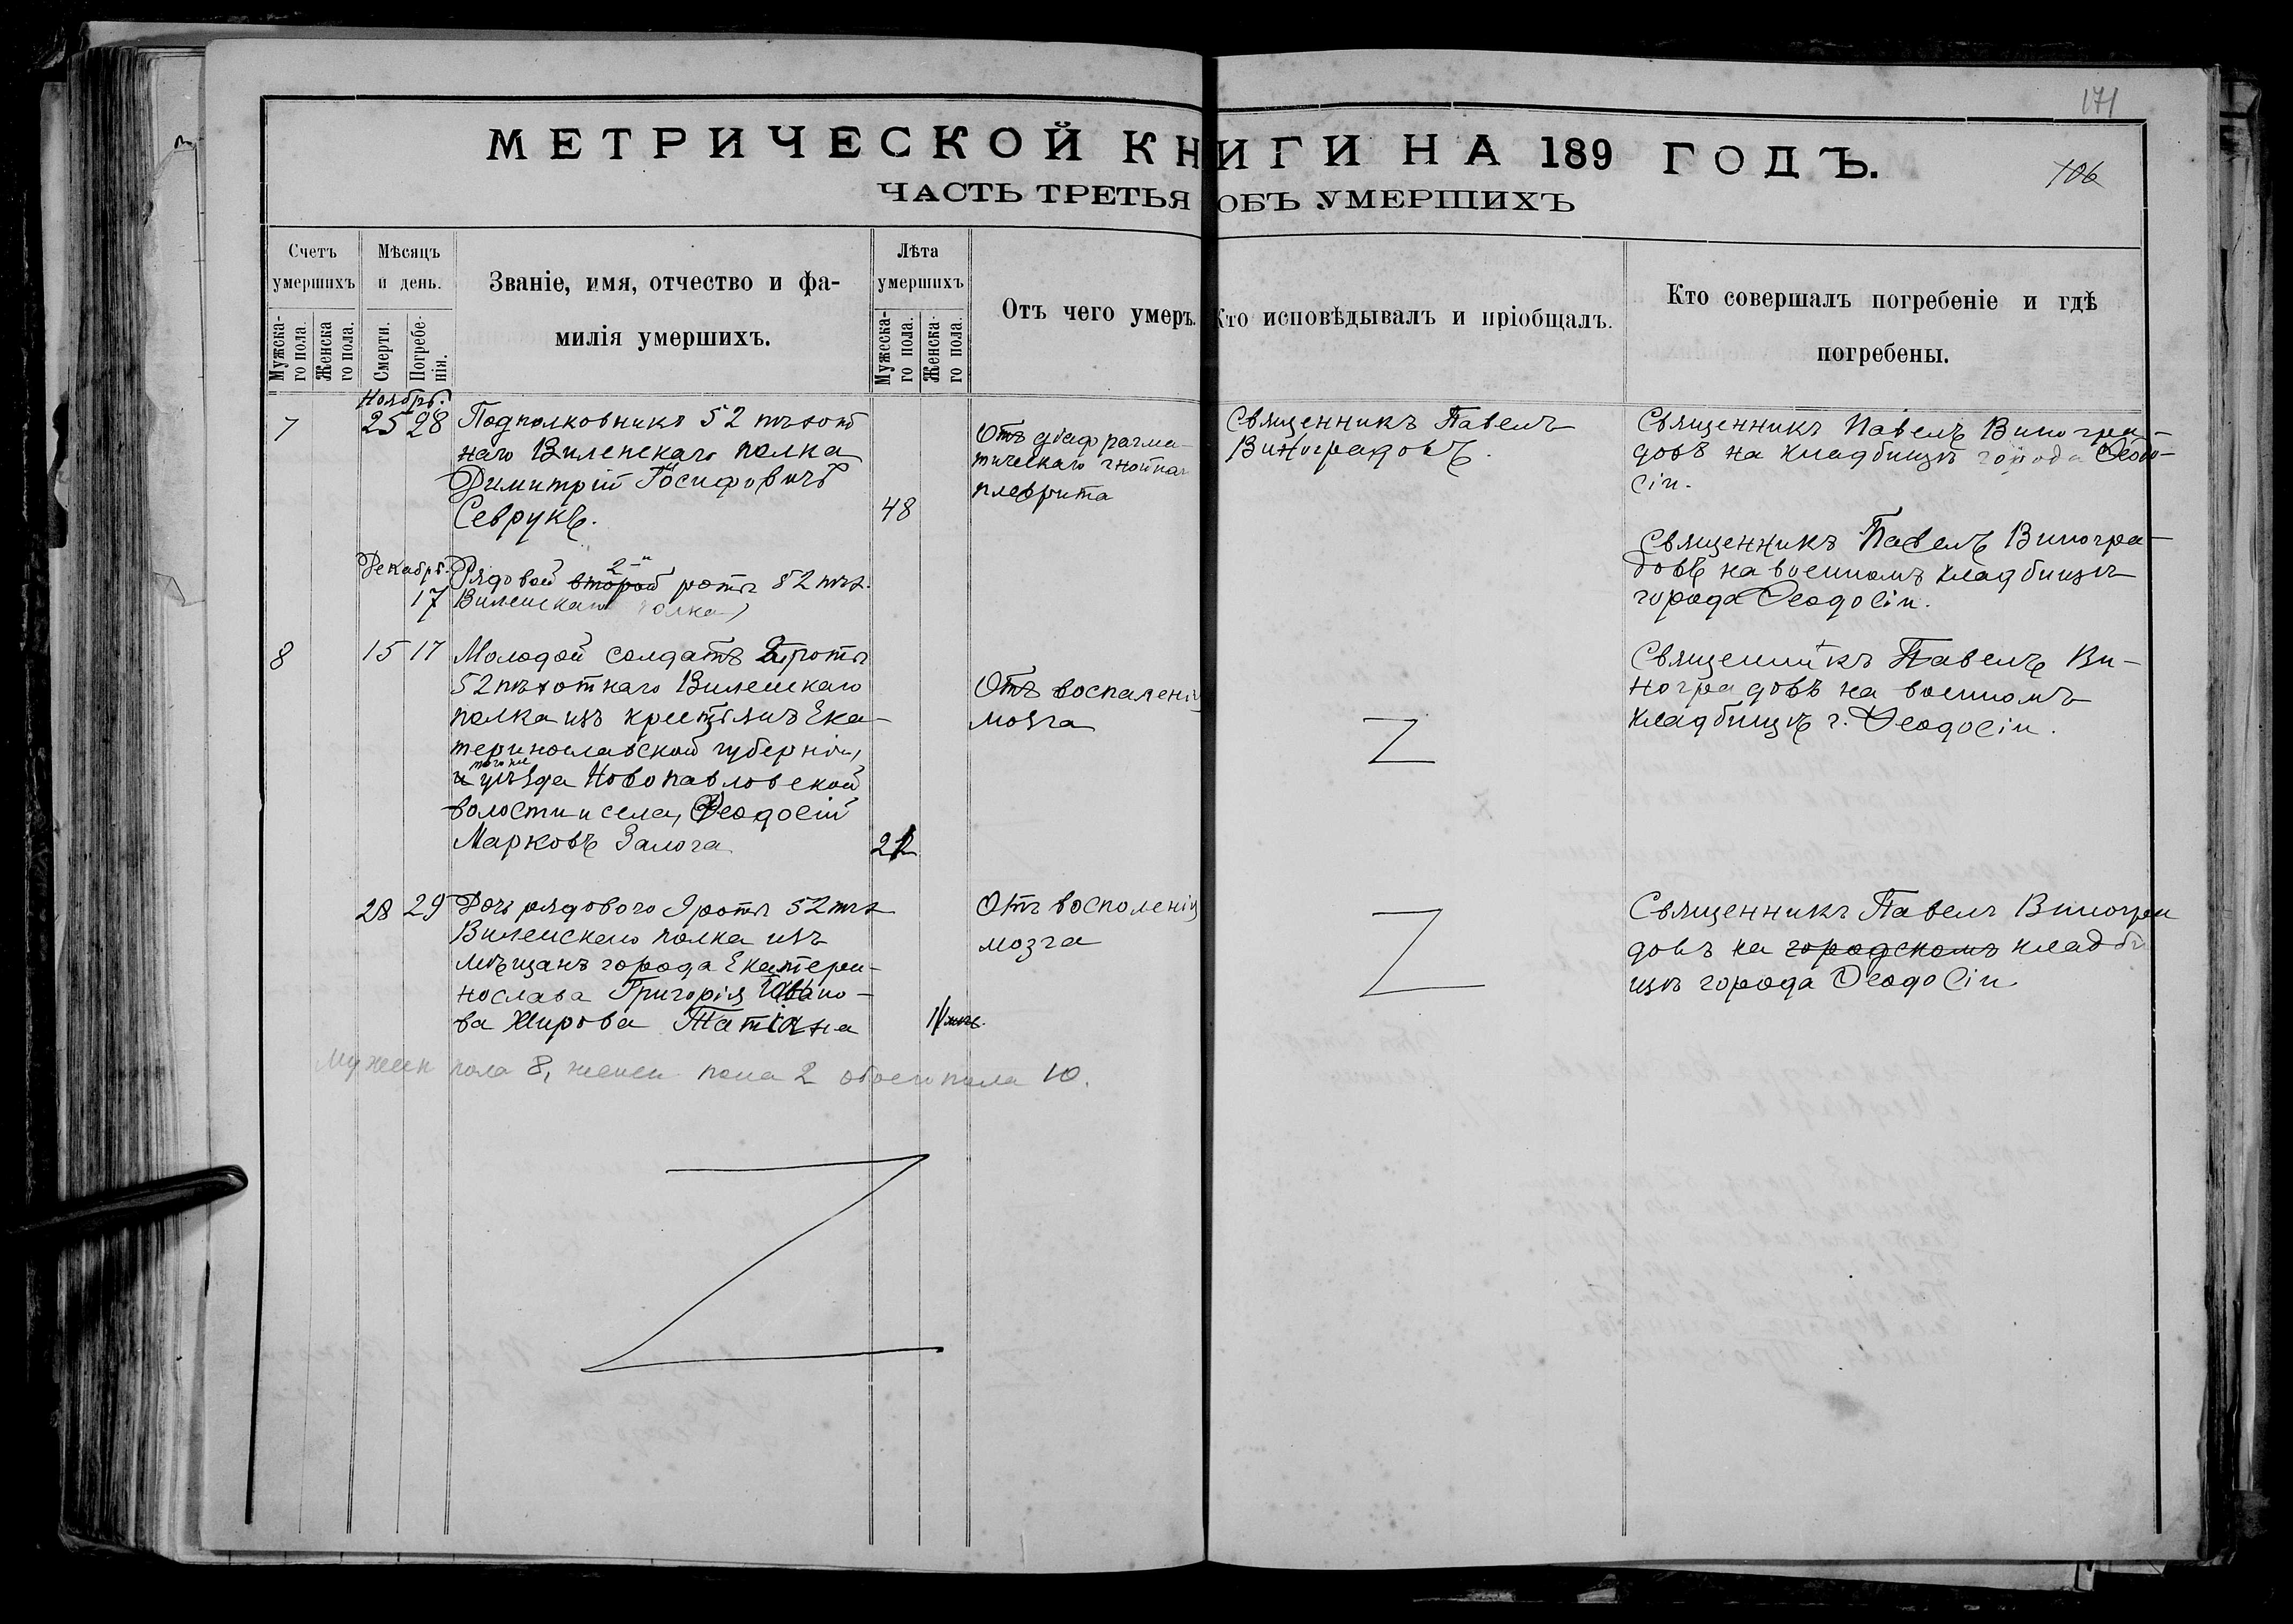 171
МЕТРИЧЕСКОЙ КНИГИ НА 189 ГОДЪ.
106
ЧАСТЬ ТРЕТЬЯ ОБЪ УМЕРШИХЪ
Счетъ умершихъ
Мужска-го пола.
Женска го пола.
Мѣсяцъ и день.
Смерти.
Погребе-нія.
Званіе, имя, отчество и фа-
милія умершихъ.
Лѣта умершихъ
Мужеска-го пола.
Женска-го пола.
Отъ чего умеръ.
Кто исповѣдывалъ и пріобщалъ.
Кто совершалъ погребеніе и гдѣ
погребены.
Ноябрь.
7
25 28
Подполковникъ 52 пѣхот
наго Виленскаго полка
Димитрій Іосифовичъ
Севрукъ.
48
Отъ діафрагма-
тическаго гнойнаг
плеврита
Священникъ Павелъ
Виноградовъ.
Священникъ Павелъ Виногра-
довъ на кладбищѣ города Ѳеодо-
сіи.
Декабрь.
17
Рядовой второй 2-й роты 52 пѣх.
Виленскаго полка,
Священникъ Павелъ Виногра-
довъ на военномъ кладбищѣ
города Ѳеодосіи.
8
15 17
Молодой солдатъ 2 роты
52 пѣхотнаго Виленскаго
полка изъ крестьянъ Ека-
теринославской губерніи,
того же
и уѣзда Новопавловской
волости и села, Ѳеодосій
Марковъ Залога
Отъ воспаленія
мозга
Священникъ Павелъ Ви-
ноградовъ на военномъ
кладбищѣ г. Ѳеодосіи.
28 29
Дочь рядового 9 роты 52 пѣх
Виленскаго полка изъ
мѣщанъ города Екатери-
нослава Григорія Ивано-
ва Жирова Татіана
Отъ восполенія
мозга
Священникъ Павелъ Виногра
довъ на городскомъ кладби
щѣ города Ѳеодосіи.
Мужеск пола 8, женск пола 2 обоего пола 10.